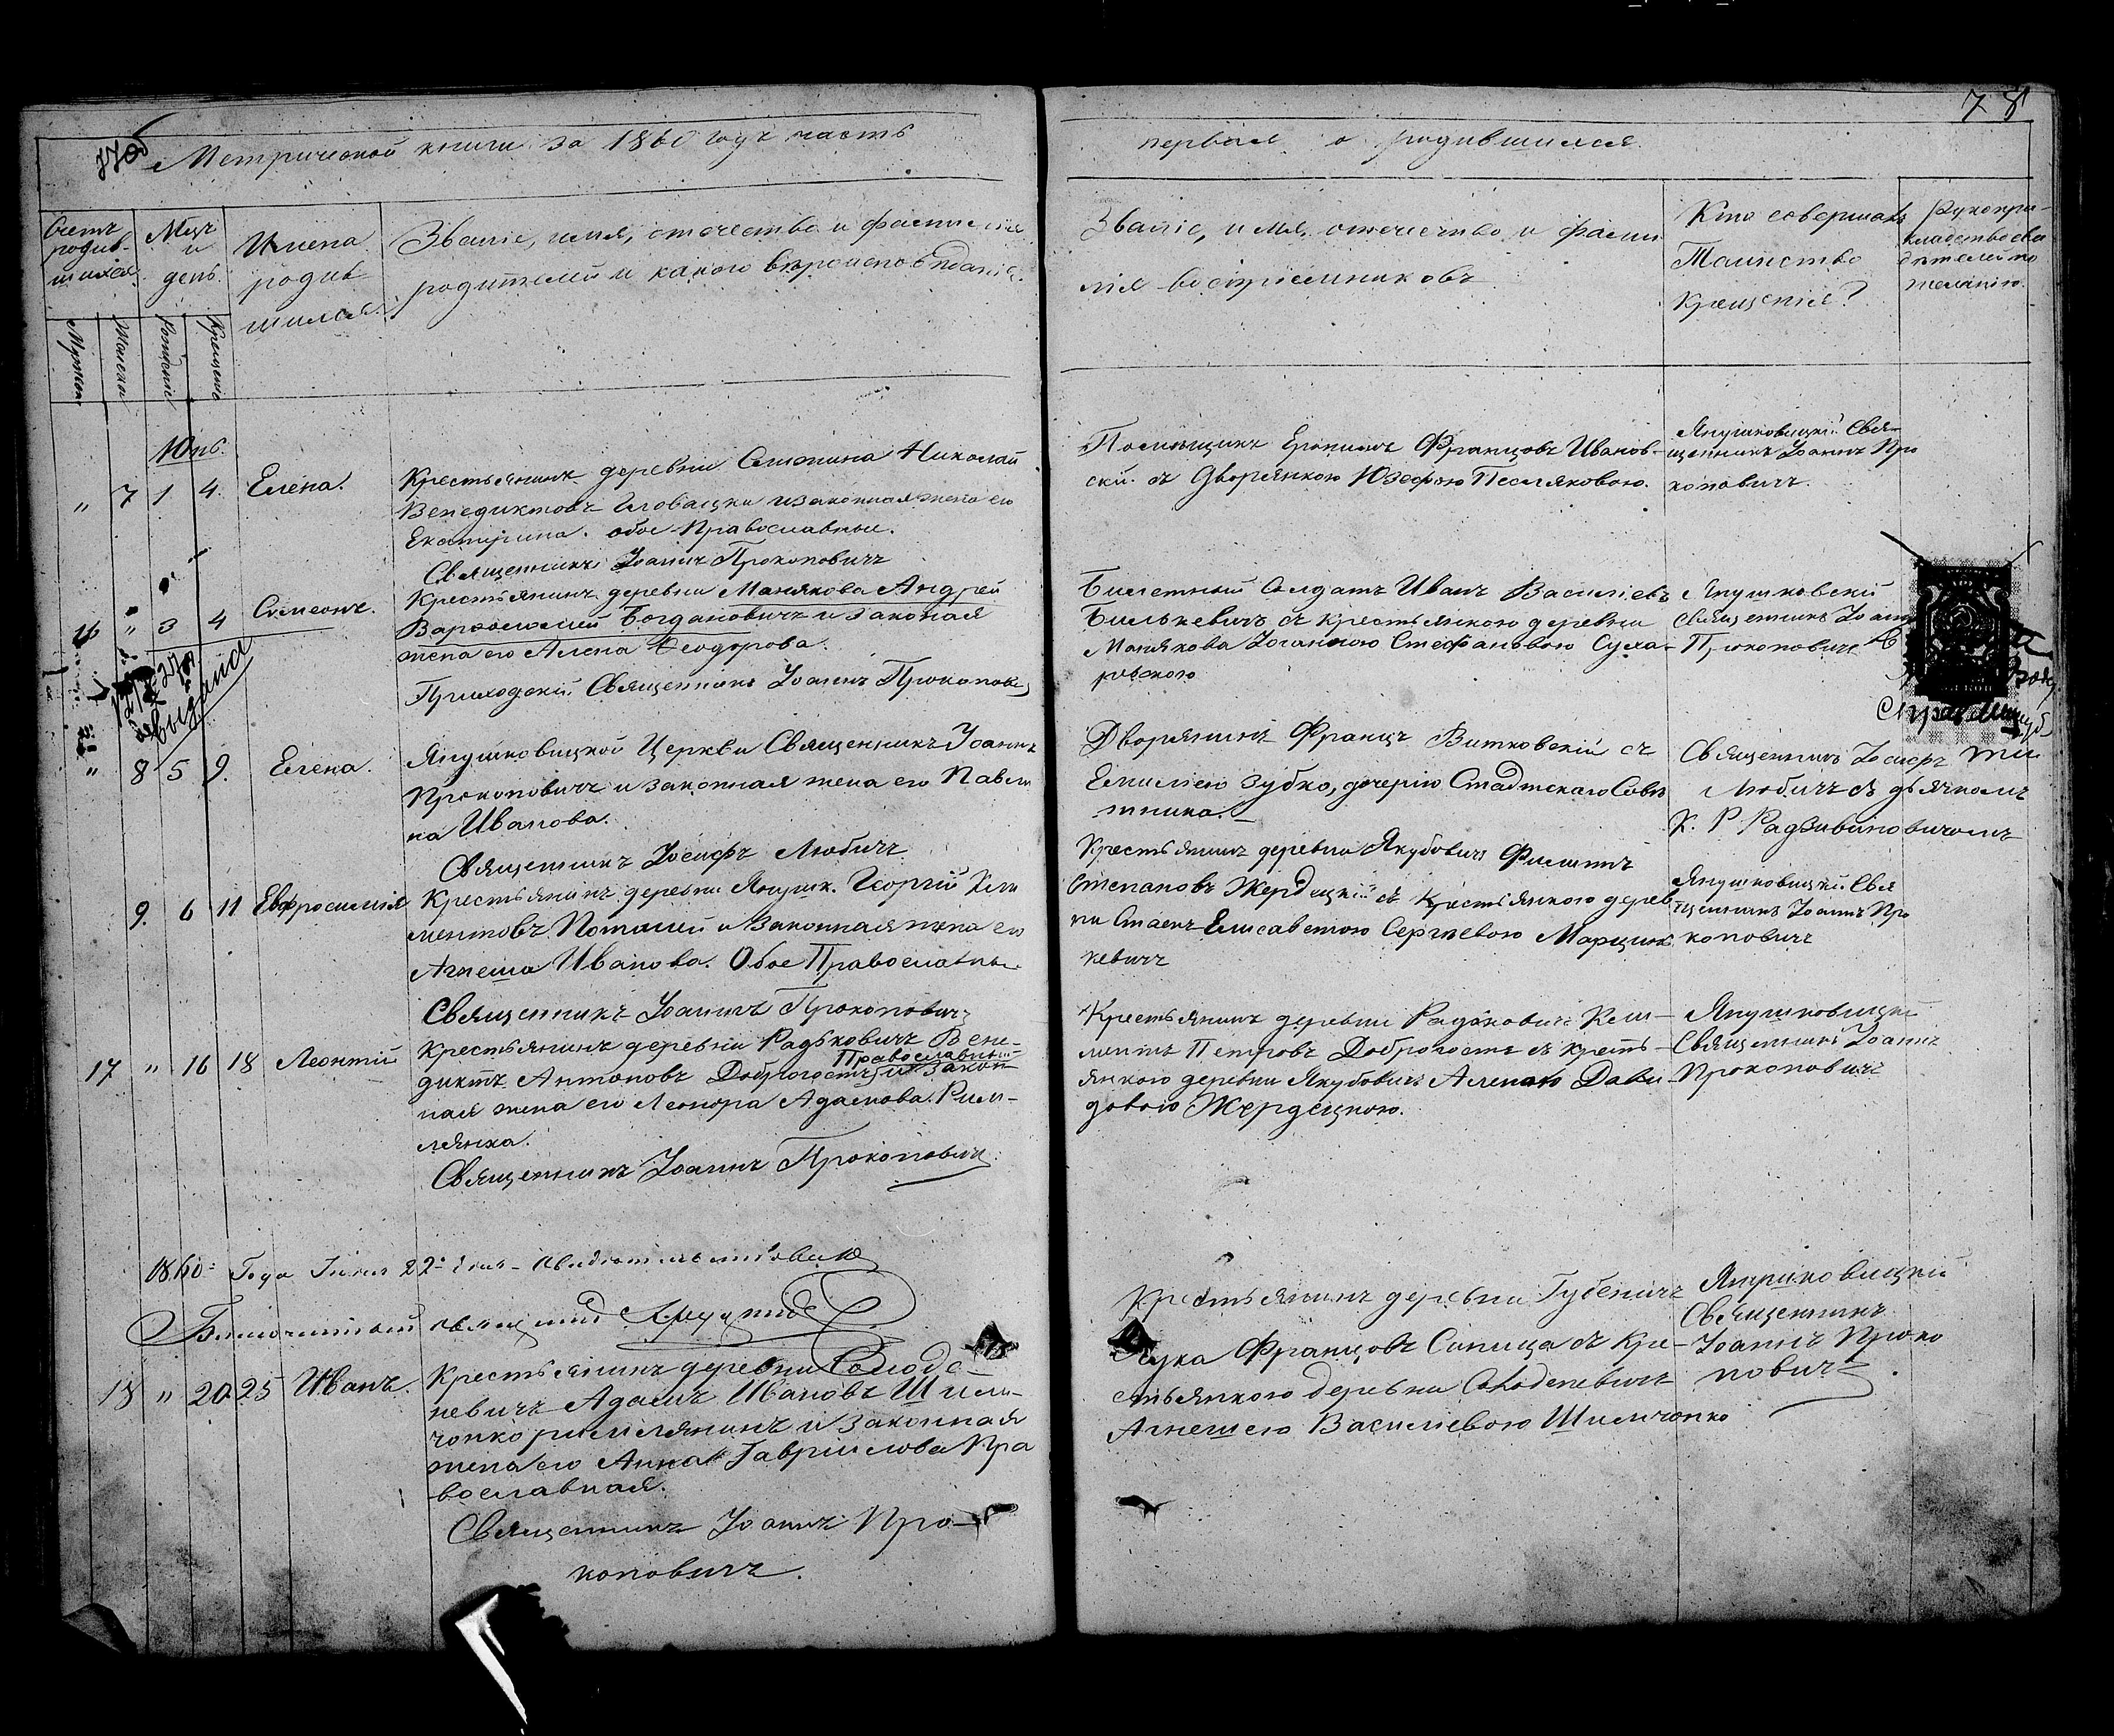 77об
Метрической книги за 1860 годъ часть
первая о родившихся
78
Счетъ родив-
шихся.
Мцъ
и
день.
Имена
родив
шихся.
Званіе, имя, отчество и фамилія
родителей и какого вѣроисповѣданія.
Званіе, имя, отчество и фами
лія воспріемниковъ
Кто совершалъ
Таинство
Крещенія?
Рукопри-
кладство сви
дѣтелей по
желанію.
Мужеск
Женски
Рожденіе
Крещеніе
Юнь.
" 7 1 4. Елена.
Крестьянинъ деревни Николай
Венедиктовъ и законная жена его
Екатерина. обое Православные.
Священникъ Іоаннъ Прокоповичъ
Помѣщикъ Еронимъ Францовъ Иванов-
скій съ Дворянкою Юзефою Песляковою.
Янушковицкій Свя-
щенникъ Іоаннъ Про
коповичъ.
16 " 3 4 Симеонъ.
Крестьянинъ деревни Манякова Андрей
Варфоломей Богдановичъ и законая
жена его Алена Феодорова.
Приходскій Священникъ Іоаннъ Прокопович
Билетный Солдатъ Иванъ Василіевъ
Билькевичъ съ крестьянкою деревни
Манякова Іоганною Стефановою Суха-
ревскою
Янушковскій
Священникъ Іоанн
Прокоповичъ
выдана
" 8 5 9. Елена.
Янушковицкой Церкви Священникъ Іоаннъ
Прокоповичъ и законная жена его Павли
на Иванова.
Священникъ Іосифъ Любичъ
Дворянинъ Францъ Витковскій съ
Емиліею Зубко, дочерію Стадтскаго Совѣ
тника.
Священникъ Іосифъ
Любичъ съ дьячкомъ
К. Р. Радзивиновичомъ
9. 6 11 Евфросинія
Крестьянинъ деревни Янушк. Георгій Кли
ментовъ и Законная жена его
Агнеша Иванова. Обое Православны
Священникъ Іоаннъ Прокоповичъ
Крестьянинъ деревни Якубовичъ Филиппъ
Степановъ Жердецкій съ Крестьянкою дерев
ни Стаенъ Елисаветою Сергѣевою Марцин
кевичъ
Янушковицкій Свя
щенникъ Іоаннъ Про
коповичъ
17 " 16 18 Леонтій
Крестьянинъ деревни Радьковичъ Вене-
диктъ Антоновъ Доброгостъ Православный и Закон-
ная жена его Леонора Адамова. Рим-
лянка.
Священникъ Іоаннъ Прокоповичъ
Крестьянинъ деревни Радьковичъ Кли-
ментъ Петровъ Доброгостъ съ Кресть-
янкою деревни Якубовичъ Аленою Дави-
довою Жердецкою.
Янушковицкій
Священникъ Іоаннъ
Прокоповичъ
1860 Года Іюня 22 дня свидетельствовалъ
Благочинный священникъ
18 " 20 25 Иванъ.
Крестьянинъ деревни Солоде
невичъ Адамъ Ивановъ Шилъ-
чонко римлянинъ и законная
жена его Анна Гавриилова Пра
вославная.
Священникъ Іоаннъ Про-
коповичъ.
Крестьянинъ деревни Губеничъ
Лука Францовъ Синица съ Кре-
стьянкою деревни Солоденевичъ
Агнешею Василіевою Шильчонко
Янушковицкій
Священникъ
Іоаннъ Проко
повичъ